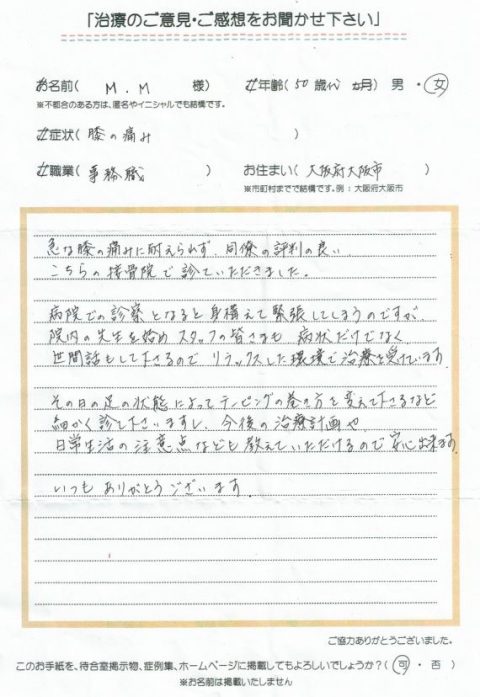 「治療のご意見・ご感想をお聞かせ下さい」
お名前( M.M 様) 年齢(50歳代 か月) 男・女
※不都合のある方は、匿名やイニシャルでも結構です。
症状(膝の痛み )
職業(事務職 ) お住まい(大阪府大阪市 )
※市町村までで結構です。例:大阪府大阪市
急な膝の痛みに耐えられず、同僚の評判の良い
こちらの接骨院で診ていただきました。
病院での診察となると身構えて緊張してしまうのですが、
院内の先生を始めスタッフの皆さまも病状だけでなく、
世間話もして下さるのでリラックスした環境で治療を受けています。
その日の足の状態によってテーピングの巻き方を変えて下さるなど
細かく診て下さいますし、今後の治療計画や、
日常生活の注意点なども教えていただけるので安心出来ます。
いつもありがとうございます。
ご協力ありがとうございました。
このお手紙を、待合室掲示物、症例集、ホームページに掲載してもよろしいでしょうか?(可・否)
※お名前は掲載いたしません